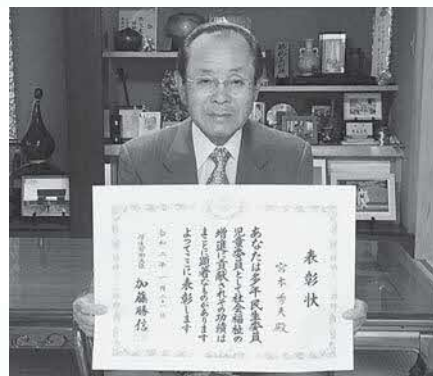 表彰状
宮本秀夫殿
あなたは多年民生委員
児童委員として社会福祉の
増進に貢献されその功績は
まことに顕著なものがあります
よってここに表彰します
令和二年
厚生労働大臣 加藤勝信